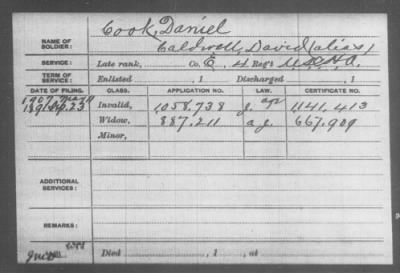 NAME OF SOLDIER: Cook, Daniel
Caldwell, David (alias)
SERVICE: Late rank, Co. E, 4 Reg't U.S.C.H.A.
TERM OF SERVICE: Enlisted , 1 Discharged , 1
DATE OF FILING. CLASS. APPLICATION NO. LAW. CERTIFICATE NO.
1907
23 Invalid, 1,058,738 1,141,413
Widow, 887,211 a.g. 667,909
Minor,
ADDITIONAL SERVICES:
REMARKS:
Died , 1 , at